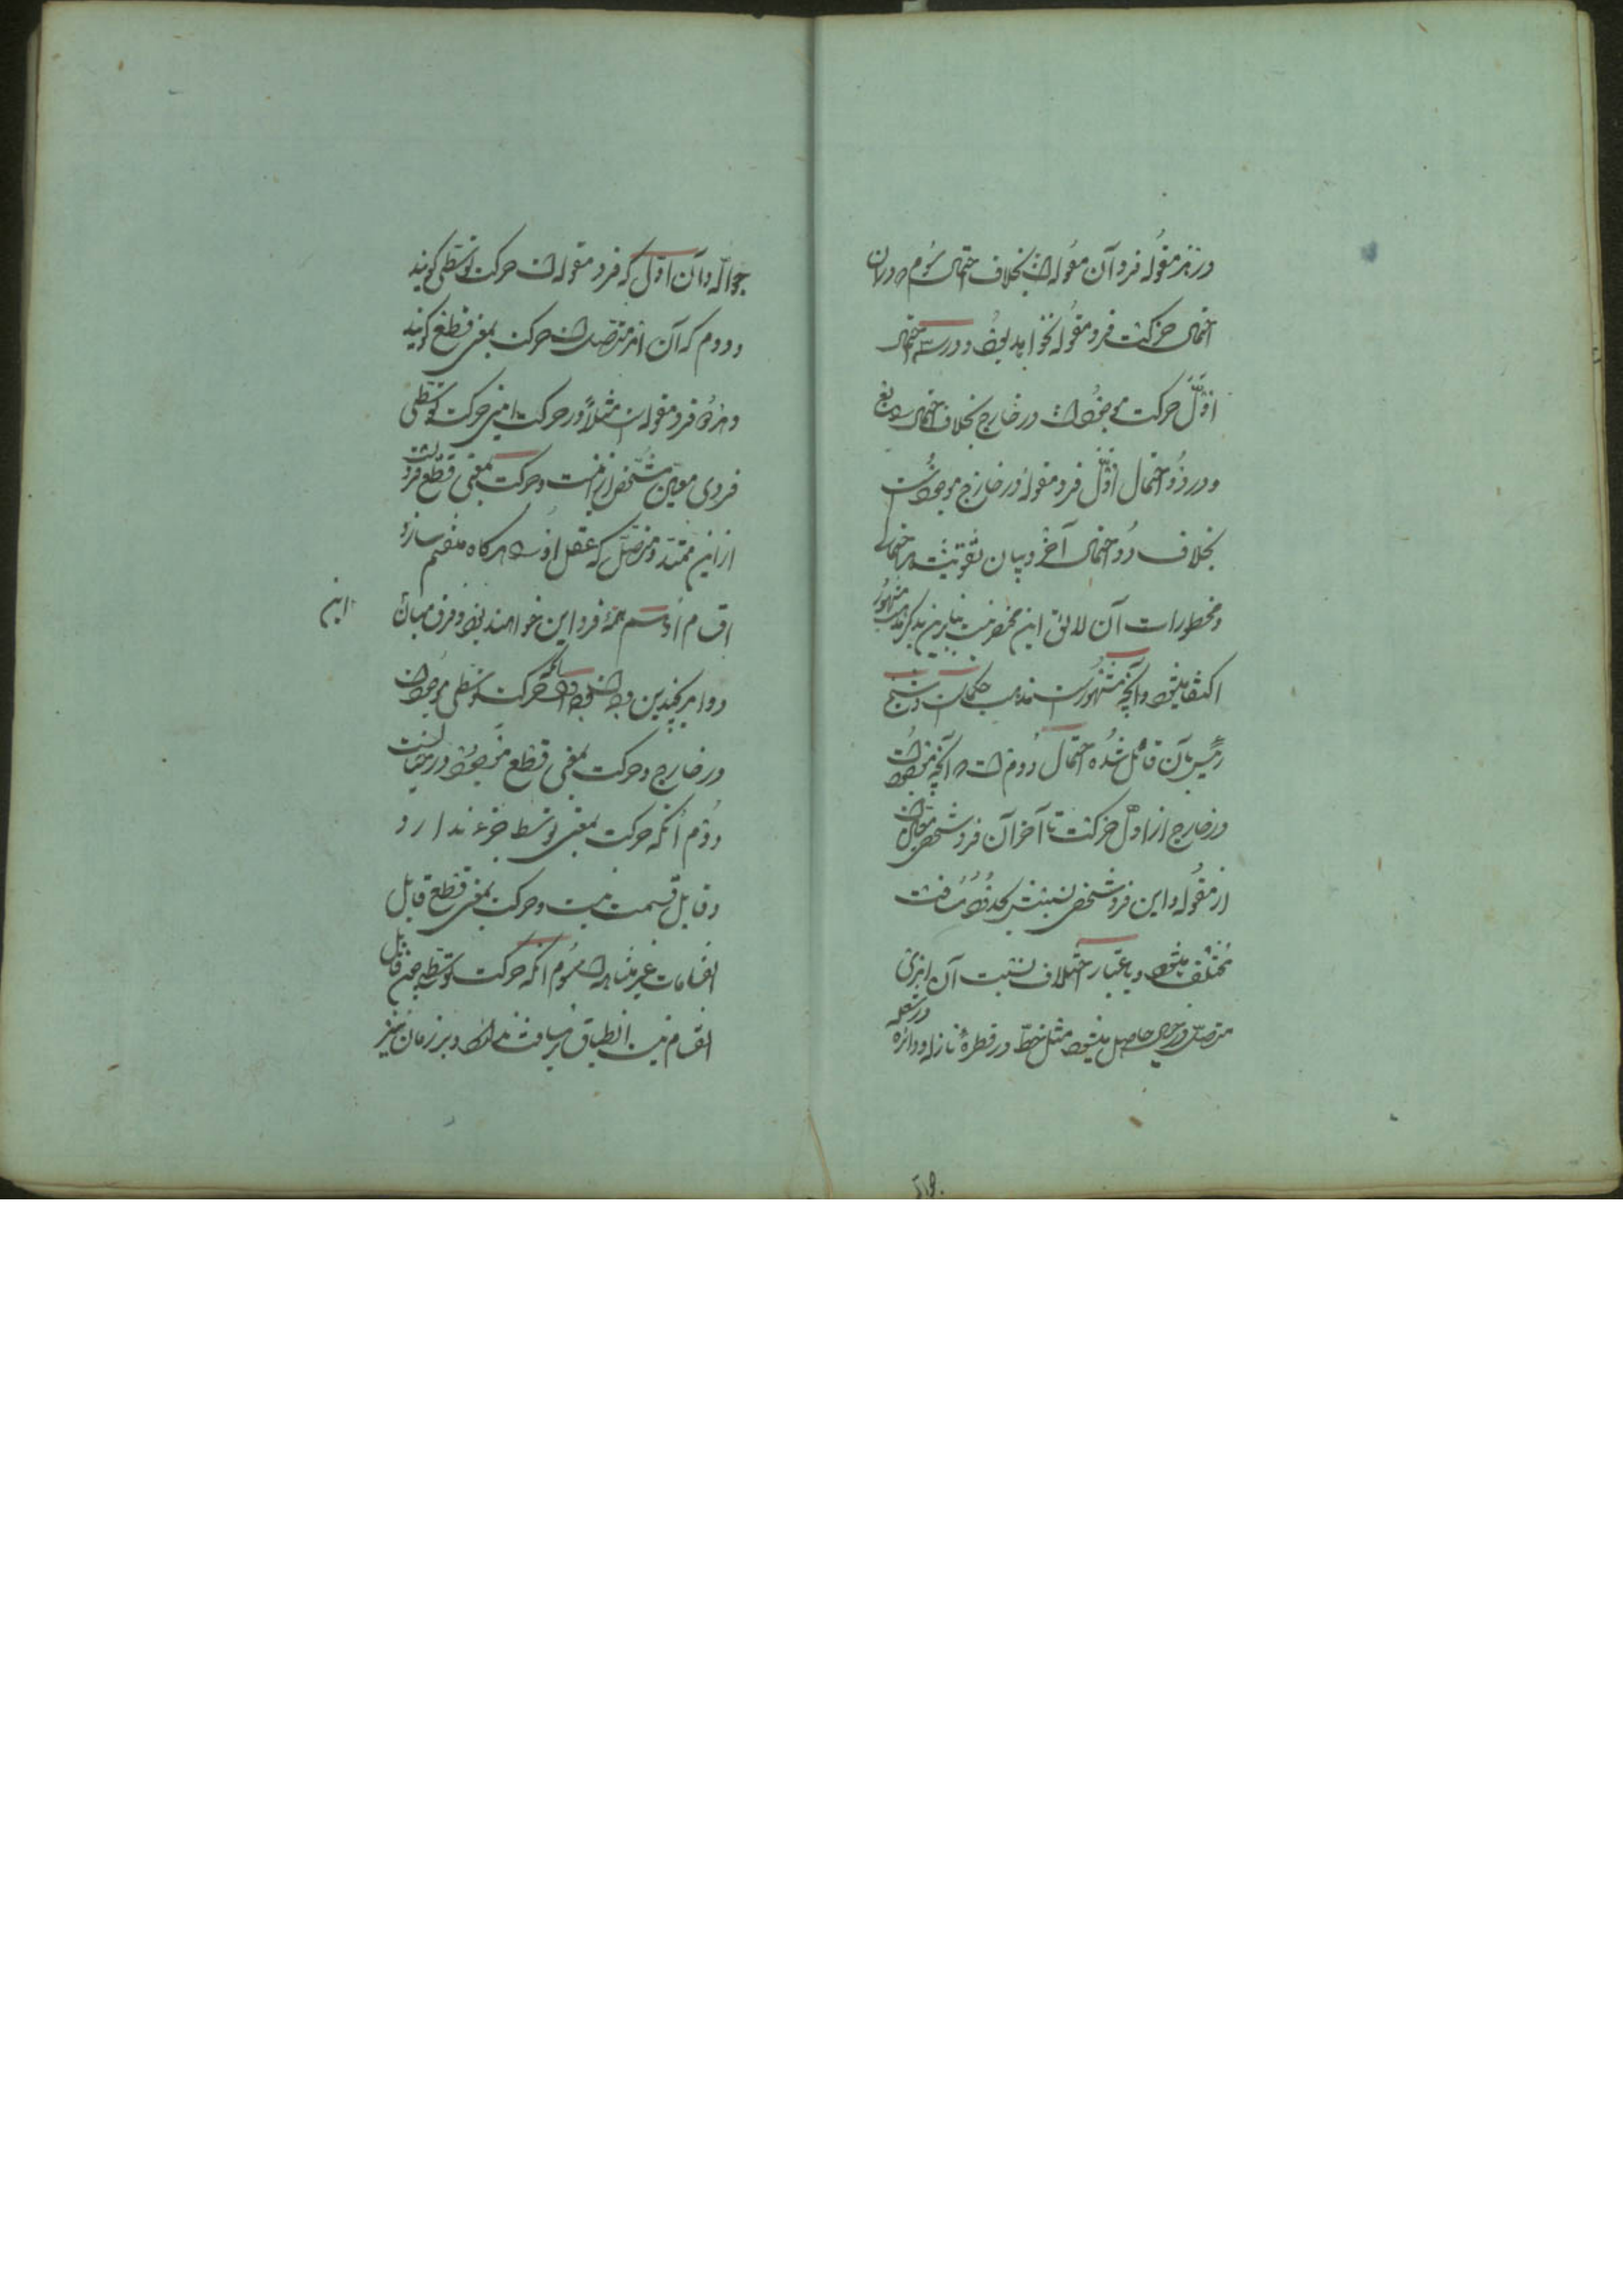 در هر مقوله فرد آن مقوله است بخلاف احتمال سوم که در آن
احتمال حرکت فرد مقوله نخواهد بود و در سه احتمال
اول حرکت موجود است در خارج بخلاف احتمال رابع
و در دو احتمال اول فرد مقوله در خارج موجود است
بخلاف دو احتمال آخر و بیان تقویت هر احتمالی
و محظورات آن لائق این مختصر نیست بنابرین بذکر مذهب مشهور
اکتفا میشود و آنچه مشهور است مذهب حکما است و شیخ
رئیس بآن قائل شده احتمال دوم است که آنچه موجود است
در خارج از اول حرکت تا آخر آن فرد شخصی
از مقوله و این فرد شخصی نسبتش بحدود مسافت
مختلف میشود و باعتبار اختلاف نسبت آن امری
متصل در حس حاصل میشود مثل خط در قطرهٔ نازله و دائره در شعله
جواله و آن اول که فرد مقوله است حرکت توسطی گویند
و دوم که آن امر متصل است حرکت بمعنی قطع گویند
و هر دو فرد مقوله است مثلاً در حرکت اینی حرکت توسطی
فردی معین مشخص از این است و حرکت بمعنی قطع فرد است
از این ممتد و متصل که عقل او را هرگاه منقسم سازد
اقسام او هم همه فرد این خواهند بود و فرق میان این
دو امر بچندین وجه است وجه اول آنکه حرکت توسطی موجود است
در خارج و حرکت بمعنی قطع موجود در خیال است
دوم آنکه حرکت بمعنی توسط جزء ندارد
و قابل قسمت نیست و حرکت بمعنی قطع قابل
انقسامات غیر متناهیه است سوم آنکه حرکت توسطیه چون قابل
انقسام نیست انطباق بر مسافت ندارد و بر زمان نیز